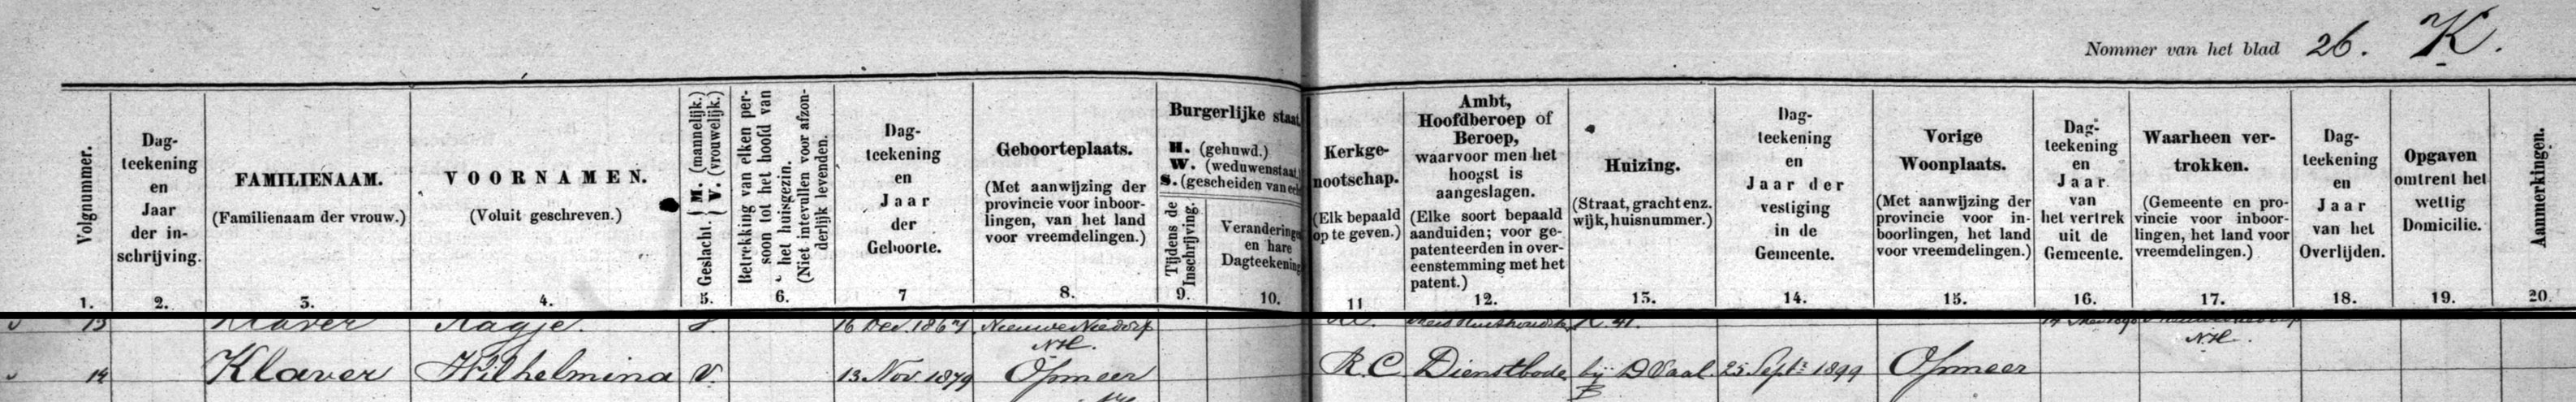 Nommer van het blad 26. K.
Volgnummer.
1.
Dag-
teekening
en
Jaar
der in-
schrijving.
2.
FAMILIENAAM.
(Familienaam der vrouw.)
3.
VOORNAMEN.
(Voluit geschreven.)
4.
Geslacht. { M. (mannelijk.)
V. (vrouwelijk.)
5.
Betrekking van elken per-
soon tot het hoofd van
het huisgezin.
(Niet intevullen voor afzon-
derlijk levenden.
6.
Dag-
teekening
en
Jaar
der
Geboorte.
7
Geboorteplaats.
(Met aanwijzing der
provincie voor inboor-
lingen, van het land
voor vreemdelingen.)
8.
Burgerlijke staat.
H. (gehuwd.)
W. (weduwenstaat.)
S. (gescheiden van
Tijdens de
Inschrijving.
9.
Veranderingen
en hare
Dagteekening
10.
Kerkge-
nootschap.
(Elk bepaald
op te geven.)
11
Ambt,
Hoofdberoep of
Beroep,
waarvoor men het
hoogst is
aangeslagen.
(Elke soort bepaald
aanduiden; voor ge-
patenteerden in over-
eenstemming met het
patent.)
12.
Huizing.
(Straat, gracht enz.
wijk, huisnummer.)
13.
Dag-
teekening
en
Jaar der
vestiging
in de
Gemeente.
14.
Vorige
Woonplaats.
(Met aanwijzing der
provincie voor in-
boorlingen, het land
voor vreemdelingen.)
15.
Dag-
teekening
en
Jaar
van
het vertrek
uit de
Gemeente.
16.
Waarheen ver-
trokken.
(Gemeente en pro-
vincie voor inboor-
lingen, het land voor
vreemdelingen.)
17.
Dag-
teekening
en
Jaar
van het
Overlijden.
18.
Opgaven
omtrent het
wettig
Domicilie.
19.
Aanmerkingen.
20.
13 Klaver Aagje. 16 Dec. 1867 Nieuwe Niedorp
N.H. N.H.
14 Klaver Wilhelmina V. 13 Nov. 1879 Opmeer R.C. Dienstbode bij D Vaal. 25 Sept: 1899 Opmeer
B